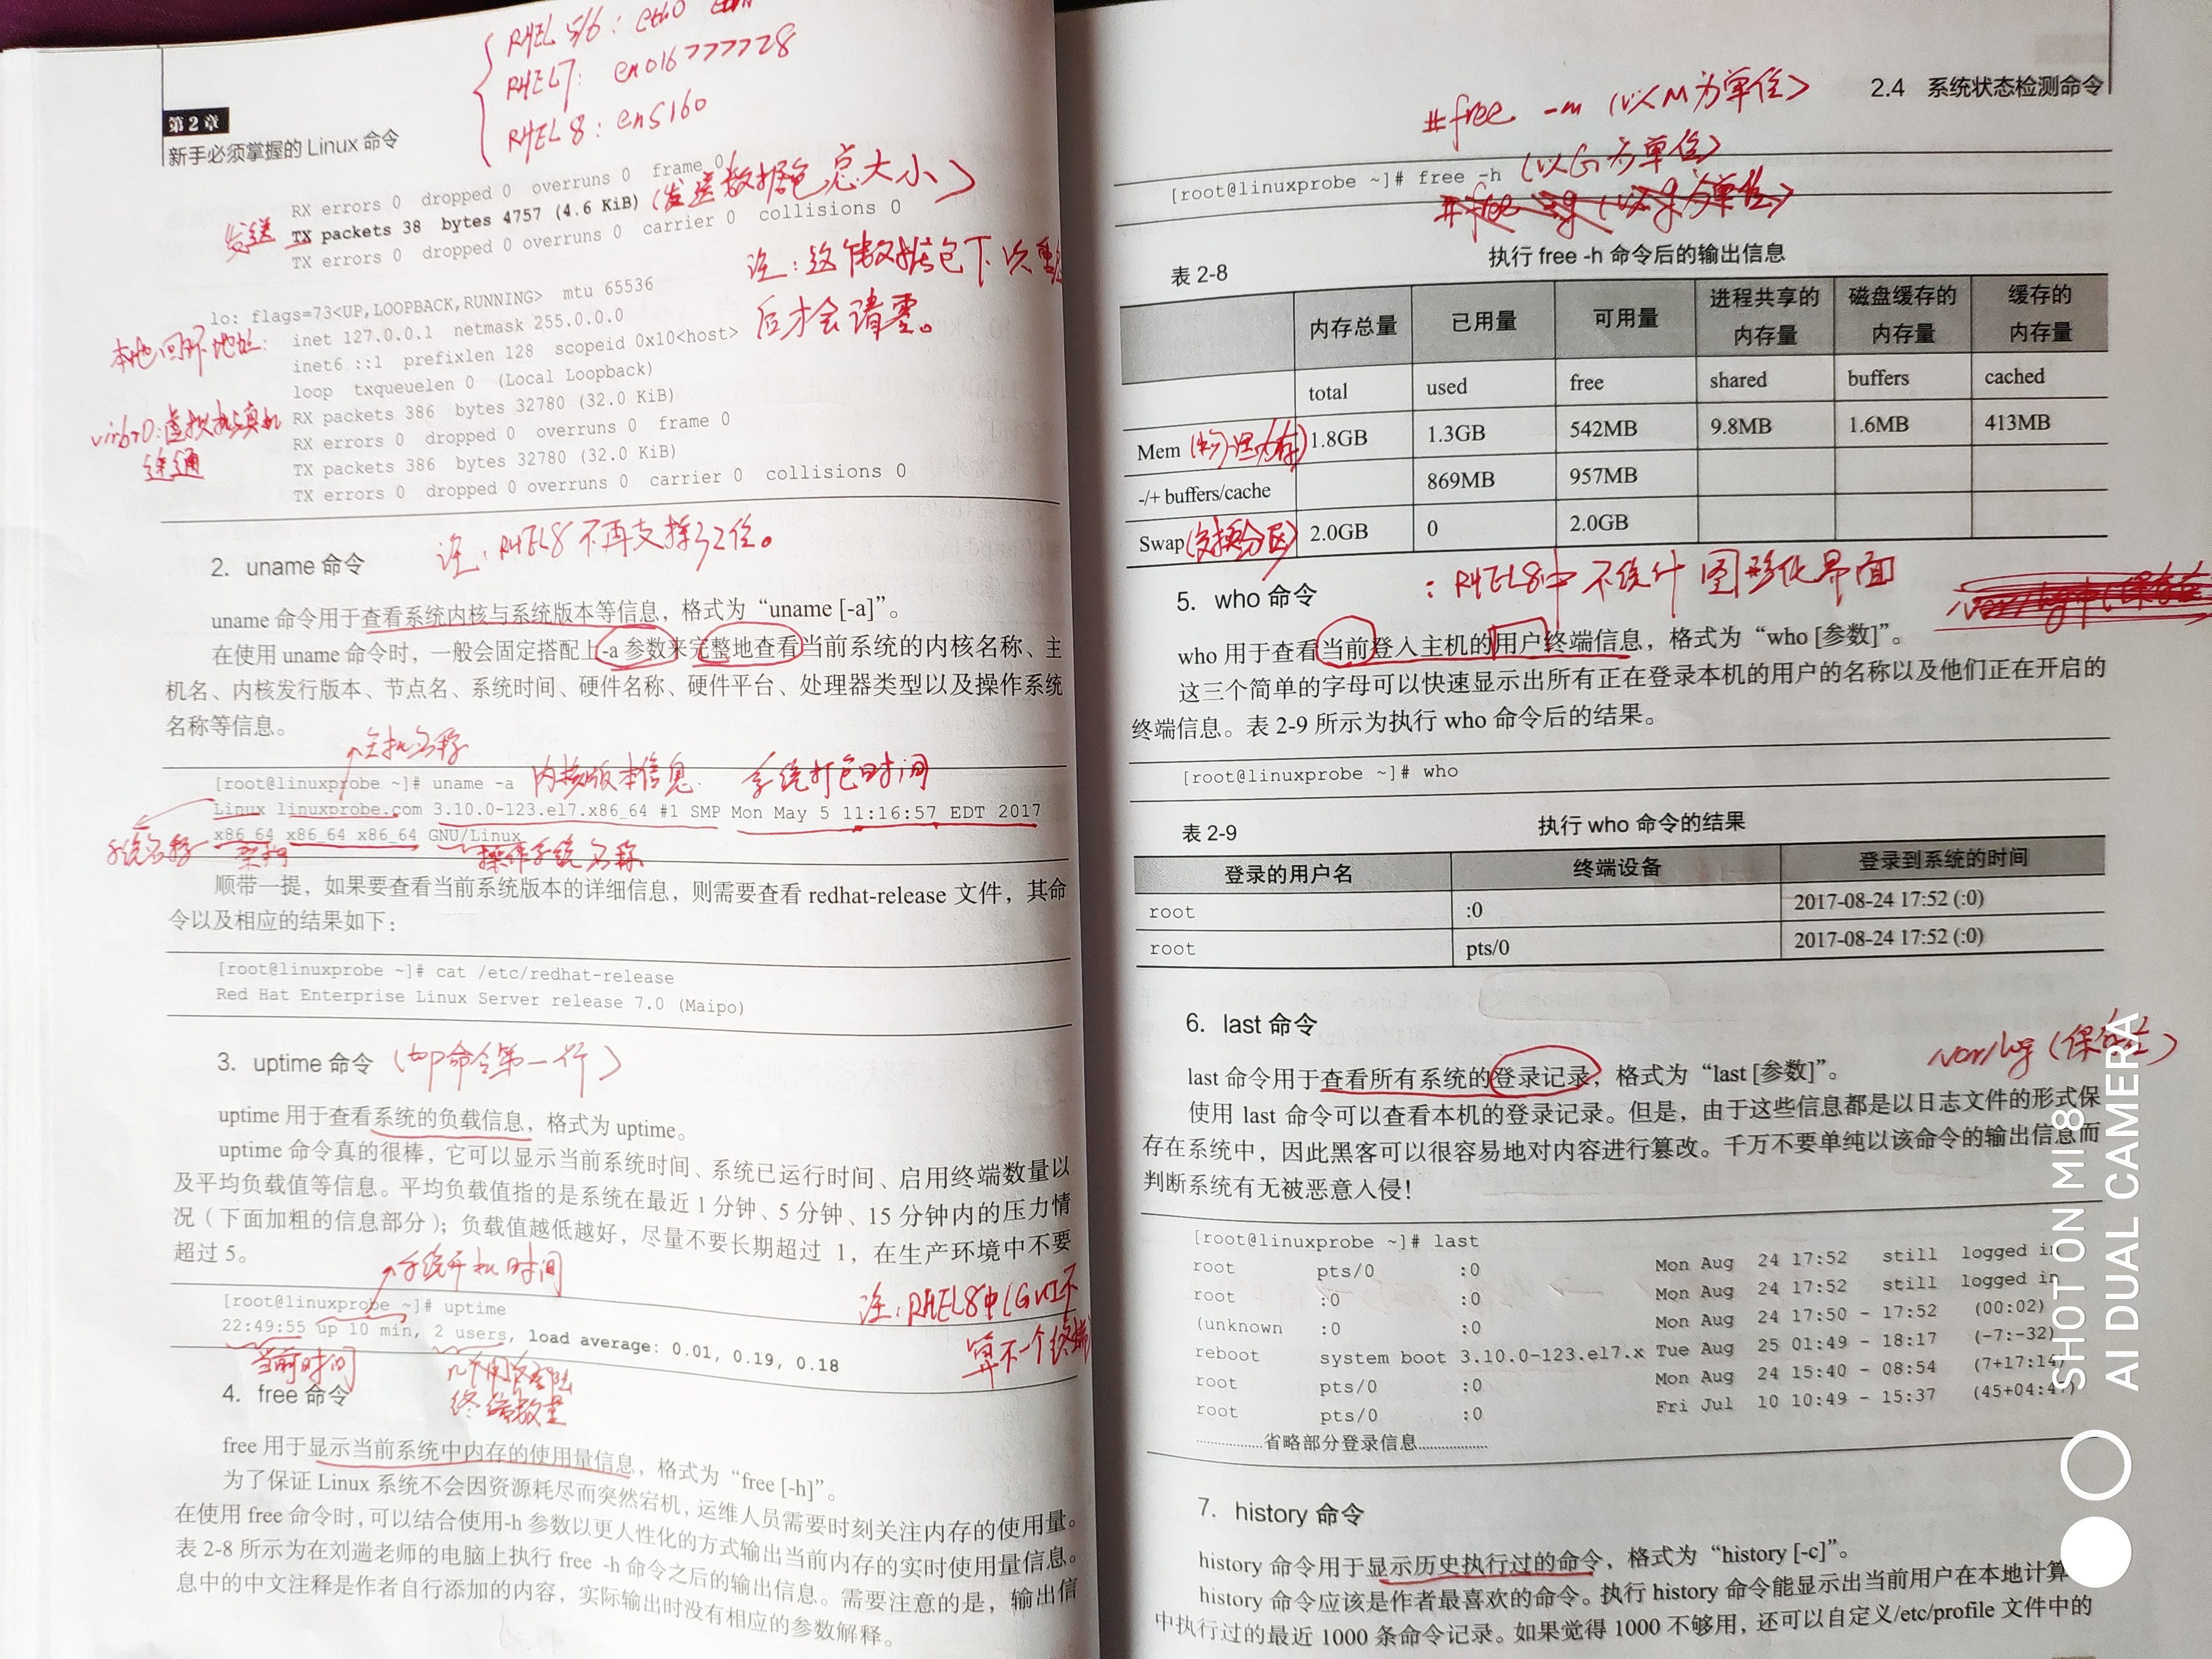 RHEL 5/6: eth0
RHEL7: eno16777728
RHEL 8: ens160
第2章
新手必须掌握的 Linux 命令
RX errors 0 dropped 0 overruns 0 frame 0
发送 TX packets 38 bytes 4757 (4.6 KiB) (发送数据包总大小)
TX errors 0 dropped 0 overruns 0 carrier 0 collisions 0
注:这个数据包下次重
后才会清零。
lo: flags=73<UP,LOOPBACK,RUNNING> mtu 65536
本地回环地址: inet 127.0.0.1 netmask 255.0.0.0
inet6 ::1 prefixlen 128 scopeid 0x10<host>
loop txqueuelen 0 (Local Loopback)
virbr0:虚拟机与真机
连通
RX packets 386 bytes 32780 (32.0 KiB)
RX errors 0 dropped 0 overruns 0 frame 0
TX packets 386 bytes 32780 (32.0 KiB)
TX errors 0 dropped 0 overruns 0 carrier 0 collisions 0
2. uname 命令
注:RHEL8不再支持32位。
uname 命令用于查看系统内核与系统版本等信息，格式为“uname [-a]”。
在使用 uname 命令时，一般会固定搭配上-a 参数来完整地查看当前系统的内核名称、主
机名、内核发行版本、节点名、系统时间、硬件名称、硬件平台、处理器类型以及操作系统
名称等信息。
主机名称
[root@linuxprobe ~]# uname -a 内核版本信息 系统打包时间
Linux linuxprobe.com 3.10.0-123.el7.x86_64 #1 SMP Mon May 5 11:16:57 EDT 2017
x86_64 x86_64 x86_64 GNU/Linux
系统名称 架构 操作系统名称
顺带一提，如果要查看当前系统版本的详细信息，则需要查看 redhat-release 文件，其命
令以及相应的结果如下：
[root@linuxprobe ~]# cat /etc/redhat-release
Red Hat Enterprise Linux Server release 7.0 (Maipo)
3. uptime 命令 (top命令第一行)
uptime 用于查看系统的负载信息，格式为 uptime。
uptime 命令真的很棒，它可以显示当前系统时间、系统已运行时间、启用终端数量以
及平均负载值等信息。平均负载值指的是系统在最近 1 分钟、5 分钟、15 分钟内的压力情
况（下面加粗的信息部分）；负载值越低越好，尽量不要长期超过 1，在生产环境中不要
超过 5。
系统开机时间
[root@linuxprobe ~]# uptime
22:49:55 up 10 min, 2 users, load average: 0.01, 0.19, 0.18
注:RHEL8中(GUI不
算不一个终端)
当前时间
终端数量
4. free 命令
free 用于显示当前系统中内存的使用量信息，格式为“free [-h]”。
为了保证 Linux 系统不会因资源耗尽而突然宕机，运维人员需要时刻关注内存的使用量。
在使用 free 命令时，可以结合使用-h 参数以更人性化的方式输出当前内存的实时使用量信息。
表 2-8 所示为在刘遄老师的电脑上执行 free -h 命令之后的输出信息。需要注意的是，输出信
息中的中文注释是作者自行添加的内容，实际输出时没有相应的参数解释。
2.4 系统状态检测命令
#free -m (以M为单位)
[root@linuxprobe ~]# free -h (以G为单位)
表 2-8 执行 free -h 命令后的输出信息
内存总量 已用量 可用量 进程共享的内存量 磁盘缓存的内存量 缓存的内存量
total used free shared buffers cached
Mem (物理内存) 1.8GB 1.3GB 542MB 9.8MB 1.6MB 413MB
-/+ buffers/cache 869MB 957MB
Swap(交换分区) 2.0GB 0 2.0GB
5. who 命令 :RHEL8中不统计图形化界面
who 用于查看当前登入主机的用户终端信息，格式为“who [参数]”。
这三个简单的字母可以快速显示出所有正在登录本机的用户的名称以及他们正在开启的
终端信息。表 2-9 所示为执行 who 命令后的结果。
[root@linuxprobe ~]# who
表 2-9 执行 who 命令的结果
登录的用户名 终端设备 登录到系统的时间
root :0 2017-08-24 17:52 (:0)
root pts/0 2017-08-24 17:52 (:0)
6. last 命令
/var/log (保存在)
last 命令用于查看所有系统的登录记录，格式为“last [参数]”。
使用 last 命令可以查看本机的登录记录。但是，由于这些信息都是以日志文件的形式保
存在系统中，因此黑客可以很容易地对内容进行篡改。千万不要单纯以该命令的输出信息而
判断系统有无被恶意入侵！
[root@linuxprobe ~]# last
root pts/0 :0 Mon Aug 24 17:52 still logged in
root :0 :0 Mon Aug 24 17:52 still logged in
(unknown :0 :0 Mon Aug 24 17:50 - 17:52 (00:02)
reboot system boot 3.10.0-123.el7.x Tue Aug 25 01:49 - 18:17 (-7:-32)
root pts/0 :0 Mon Aug 24 15:40 - 08:54 (7+17:14)
root pts/0 :0 Fri Jul 10 10:49 - 15:37 (45+04:47)
..................省略部分登录信息...................
7. history 命令
history 命令用于显示历史执行过的命令，格式为“history [-c]”。
history 命令应该是作者最喜欢的命令。执行 history 命令能显示出当前用户在本地计算
中执行过的最近 1000 条命令记录。如果觉得 1000 不够用，还可以自定义/etc/profile 文件中的
SHOT ON MI8
AI DUAL CAMERA